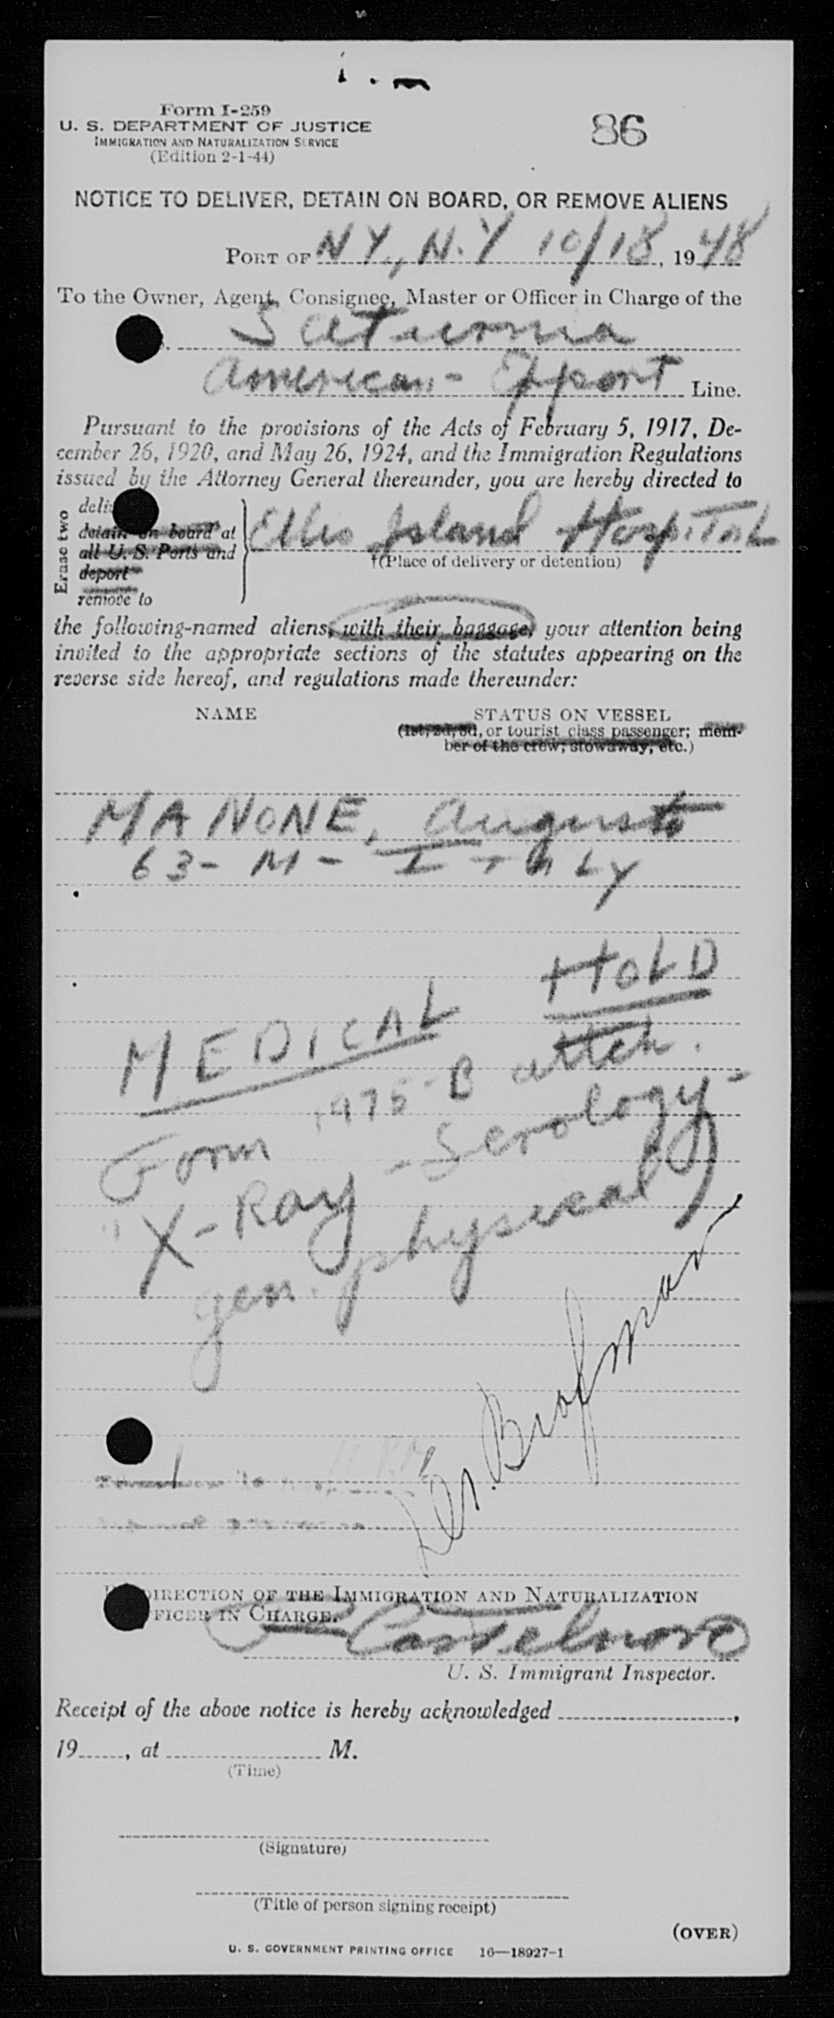 Form I-259
86
U. S. DEPARTMENT OF JUSTICE
IMMIGRATION AND NATURALIZATION SERVICE
(Edition 2-1-44)
NOTICE TO DELIVER, DETAIN ON BOARD, OR REMOVE ALIENS
PORT OF NY., N.Y 10/18, 1948
To the Owner, Agent, Consignee, Master or Officer in Charge of the
Saturnia
American-Export Line.
Pursuant to the provisions of the Acts of February 5, 1917, De-
cember 26, 1920, and May 26, 1924, and the Immigration Regulations
issued by the Attorney General thereunder, you are hereby directed to
Erase two
detain on board at
all U. S. Ports and
deport
remove to
Ellis Island Hospital
†(Place of delivery or detention)
the following-named aliens, with their baggage, your attention being
invited to the appropriate sections of the statutes appearing on the
reverse side hereof, and regulations made thereunder:
NAME STATUS ON VESSEL
(1st, 2d, 3d, or tourist class passenger; mem-
ber of the crew; stowaway, etc.)
MANONE, Augusto
63- M- ITALY
MEDICAL HOLD
Form 1975-B attch.
"X-Ray -Serology-
gen. physical)
Dr. Brofman
DIRECTION OF THE IMMIGRATION AND NATURALIZATION
IN CHARGE.
Castelnovo
U. S. Immigrant Inspector.
Receipt of the above notice is hereby acknowledged ,
19 , at M.
(Time)
(Signature)
(Title of person signing receipt)
(OVER)
U. S. GOVERNMENT PRINTING OFFICE 16—18927-1